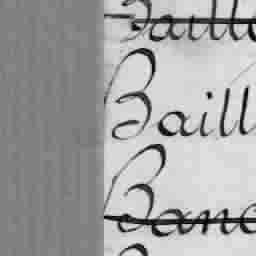 Baill
Baill
Banc